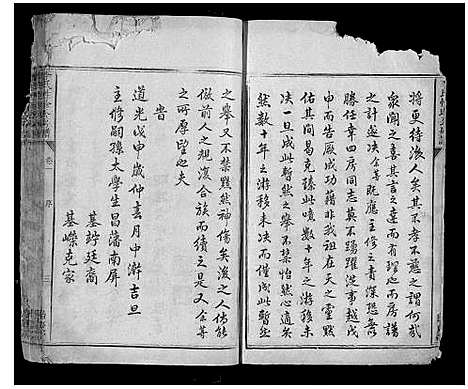 將更待後人矣其不孝不慈之謂何哉
眾聞之喜其言之達而有理也而房譜
之計遂決余等既應主修之責深恐無
勝任幸四房同志莫不踴躍從事越戊
申而告厥成功猗歟非我祖在天之靈默
佑其間曷克臻此噫數十年之游移未
决一旦成此暫然之舉不禁怡然心喜
然數十年之游移未决而僅成此暫然
之舉又不禁黯然神傷矣後之人倘能
倣前人之規復合族而續之是又余等
之所厚望也夫
旹
道光戊申歲仲春月中澣吉旦
主修嗣孫太學生昌藩南屏
基竚廷裔
基嶸克家
卷一
序
三